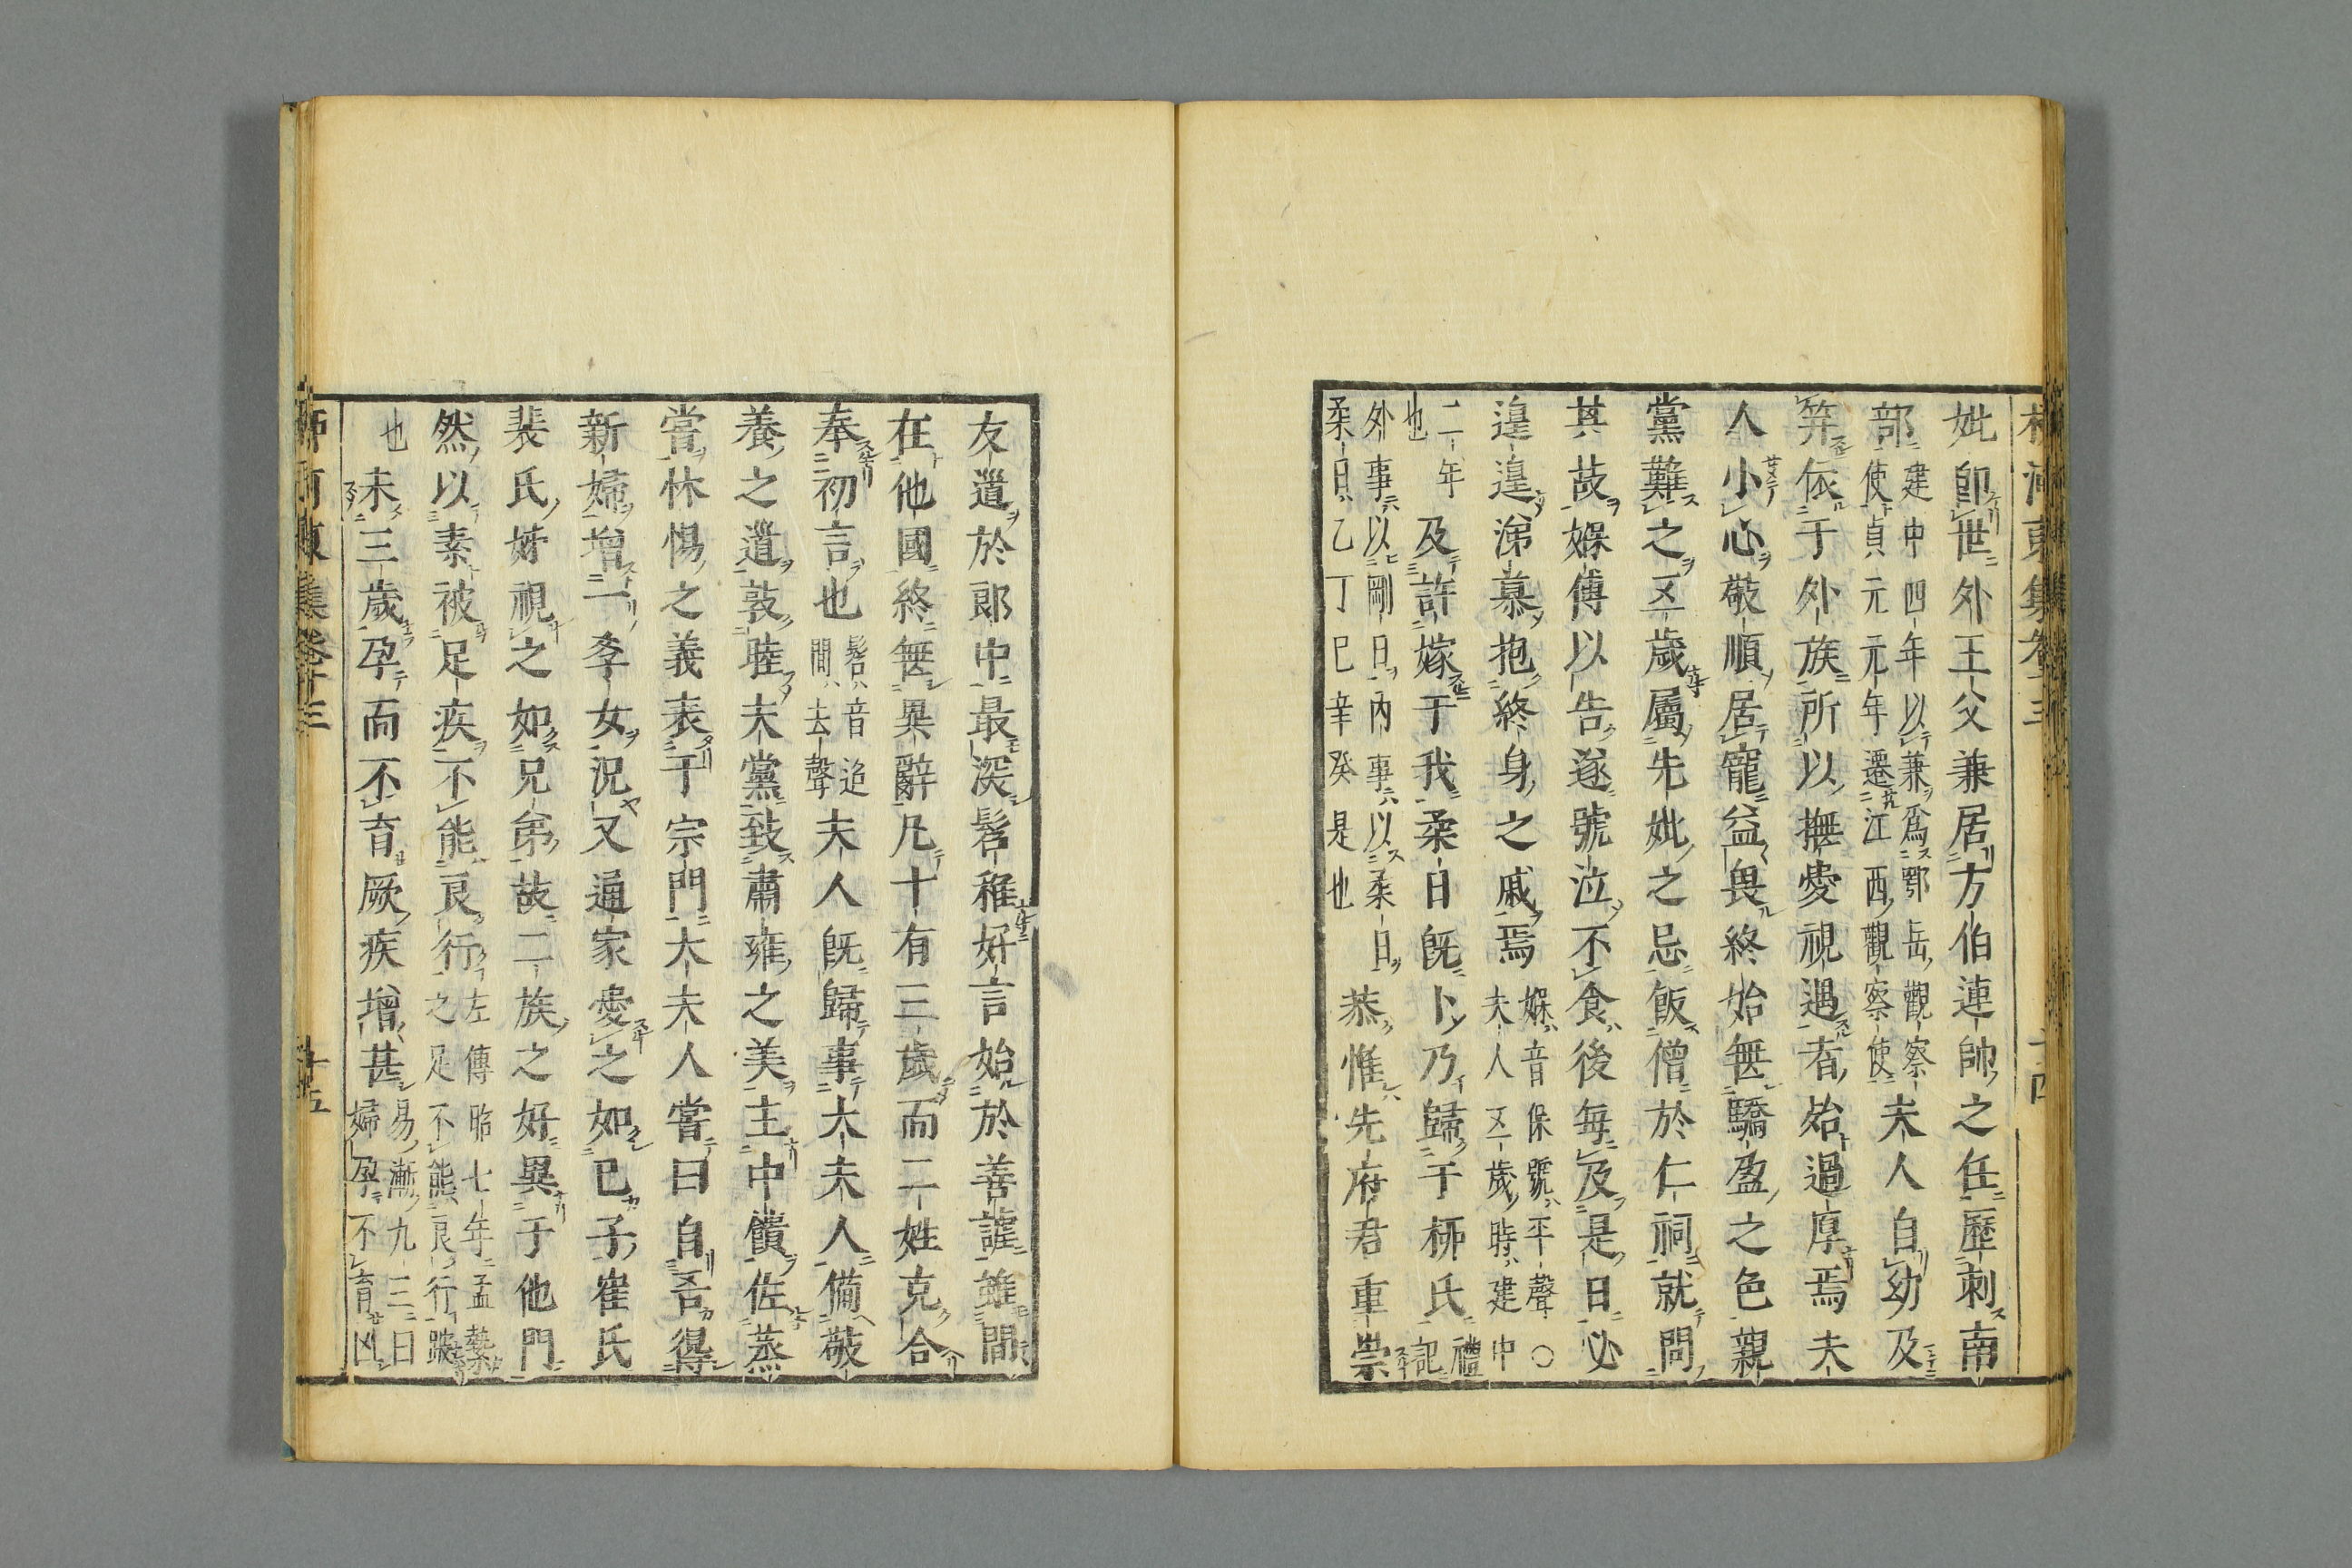 柳河東集卷十三 十四
妣卽世外王父兼居方伯連帥之任歷刺南
部建中四年以兼爲鄂岳觀察使貞元元年遷江西觀察使夫人自幼及
笄依于外族所以撫愛視遇者殆過厚焉夫
人小心敬順居寵益畏終始無驕盈之色親
黨難之五歲屬先妣之忌飯僧於仁祠就問
其故媬傅以告遂號泣不食後每及是日必
遑遑涕慕抱終身之戚焉媬音保號平聲○夫人五歲時建中
二年也及許嫁于我柔日旣卜乃歸于柳氏禮記
外事以剛日內事以柔日柔日乙丁巳辛癸是也恭惟先府君重崇
友道於郎中最深髫稚好言始於善謔雖間
在他國終無異辭凡十有三歲而二姓克合
奉初言也髫音迢間去聲夫人旣歸事大夫人備敬
養之道敦睦夫黨致肅雍之美主中饋佐蒸
嘗怵惕之義表于宗門大夫人嘗曰自吾得
新婦增一孝女況又通家愛之如己子崔氏
裴氏姊視之如兄弟故二族之好異于他門
然以素被足疾不能良行左傳昭七年孟縶之足不能良行跛
也未三歲孕而不育厥疾增甚易漸九三曰婦孕不育凶
柳河東集卷十三 十五